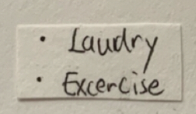 • Laudry
• Excercise